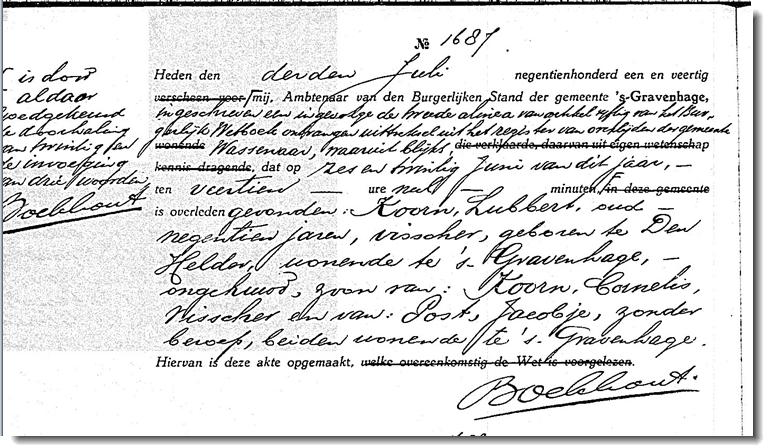 № 1687.
is door
aldaar
goedgekeurd
de doorhaling
van twintig en
de invoeging
van drie woorden
Boekhout
Heden den derden Juli negentienhonderd een en veertig
verscheen voor mij, Ambtenaar van den Burgerlijken Stand der gemeente 's-Gravenhage,
ingeschreven een ingevolge de tweede alinea van artikel vijftig van het Bur-
gerlijk Wetboek ontvangen uittreksel uit het register van overlijden der gemeente
wonende Wassenaar, waaruit blijkt, die verklaarde, daarvan uit eigen wetenschap
kennis dragende, dat op zes en twintig Juni van dit jaar, –
ten veertien – ure nul – minuten, in deze gemeente
is overleden gevonden: Koorn, Lubbert, oud –
negentien jaren, visscher, geboren te Den
Helder, wonende te 's-Gravenhage, –
ongehuwd, zoon van: Koorn, Cornelis,
visscher en van: Post, Jacobje, zonder
beroep, beiden wonende te 's-Gravenhage.
Hiervan is deze akte opgemaakt, welke overeenkomstig de Wet is voorgelezen.
Boekhout.